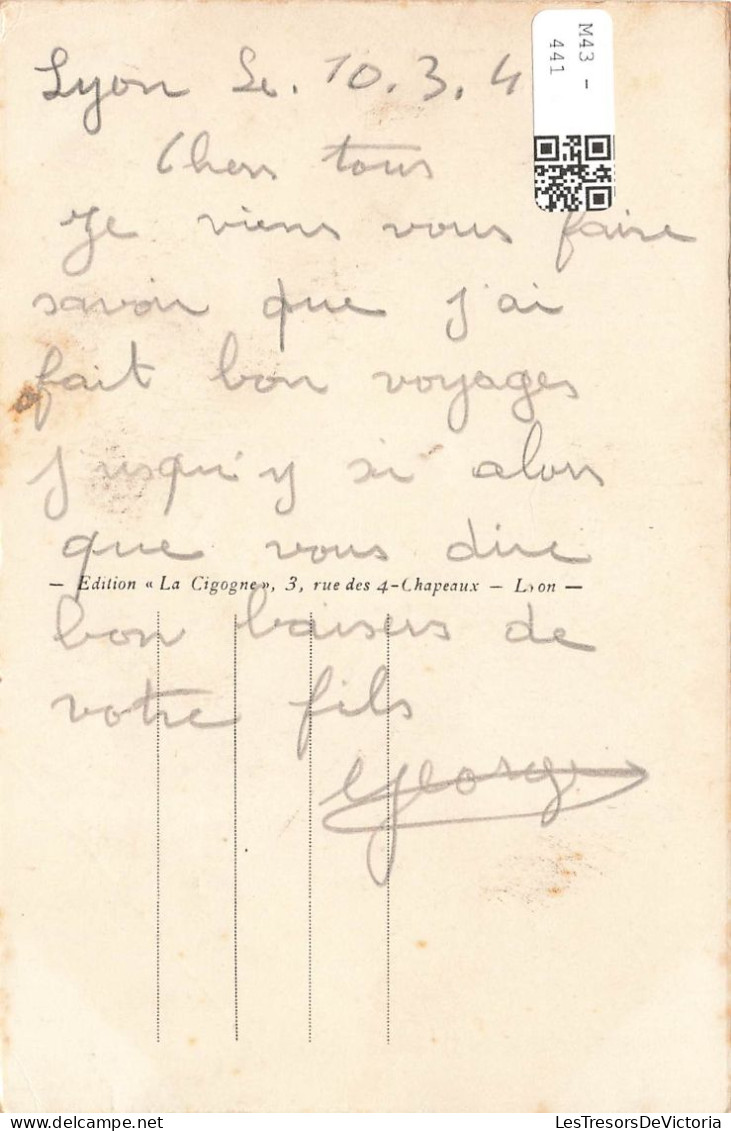 Lyon Le. 10. 3. 4
M43 - 441
Chers tous
Je viens vous faire
savoir que j'ai
fait bon voyages
jusqu'y si alors
que vous dire
— Edition « La Cigogne », 3, rue des 4-Chapeaux — Lyon —
bon baisers de
votre fils
George
LesTresorsDeVictoria | www.delcampe.net